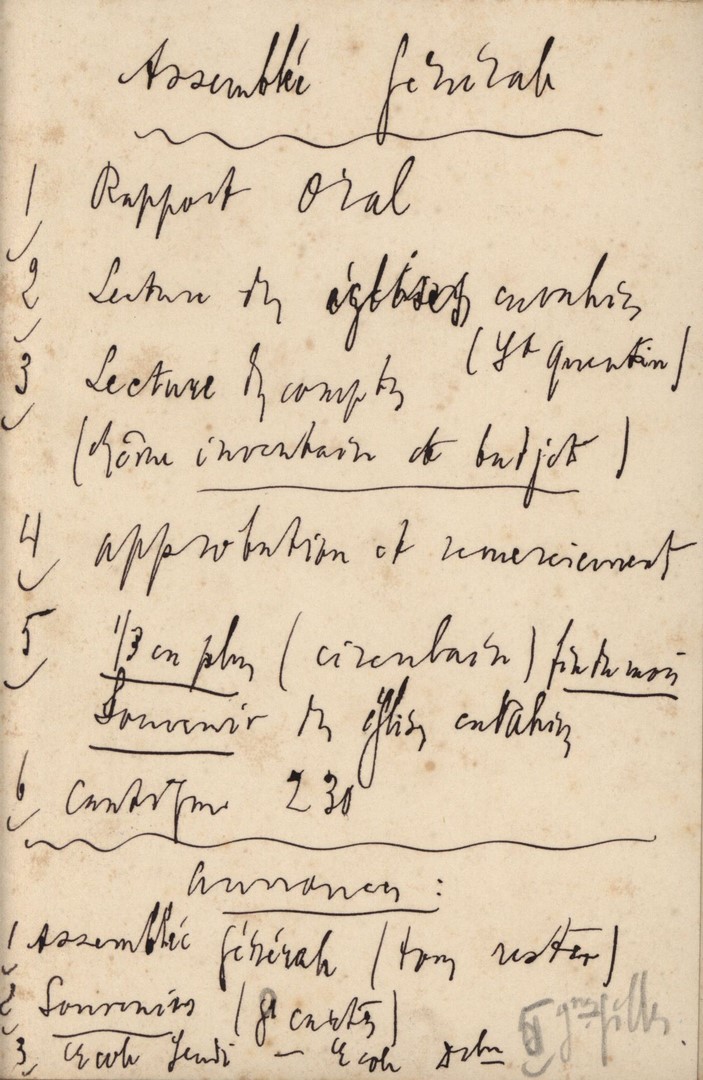 Assemblée Générale
1 Rapport Oral
2 Lecture des églises envahies
(St Quentin)
3 Lecture des comptes
(Drôme inventaire et budjet)
4 approbation et remerciement
5 1/3 en plus (circulaire) fin du mois
Souvenir des églises envahies
6 Cantique 230
Annonces :
1 Assemblée Générale (tous rester)
2 Souvenirs (cartes)
3 Ecole Jeudi – Ecole
filles